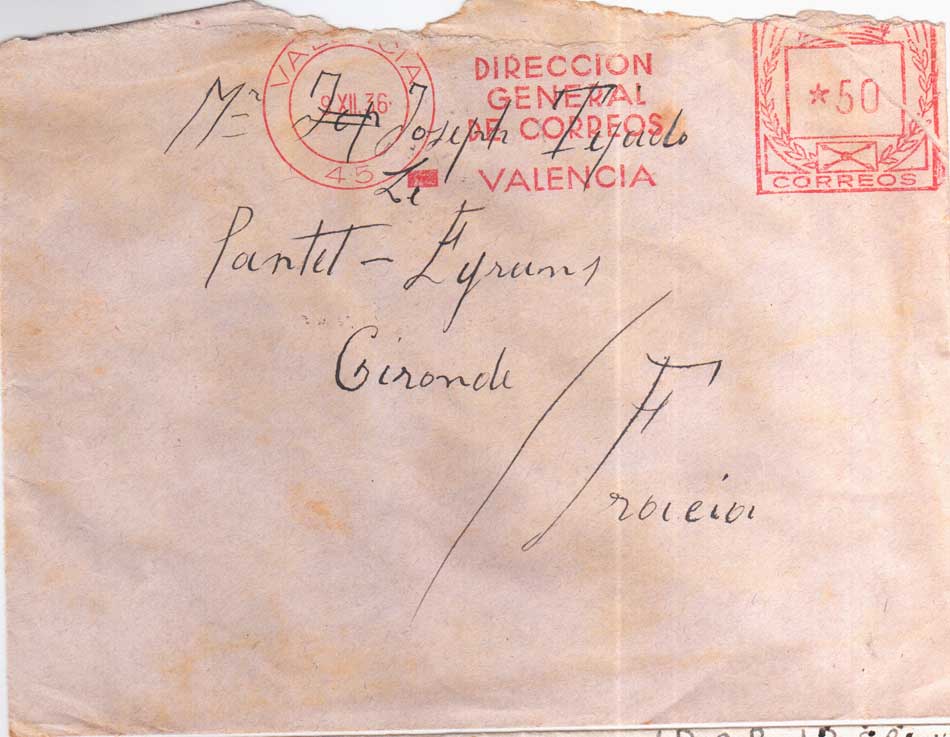 VALENCIA
9 XII.36
45
DIRECCION
GENERAL
DE CORREOS
VALENCIA
*50
CORREOS
Mr Jop Joseph Tejado
Le
Pantet - Eyrans
Gironde
Francia